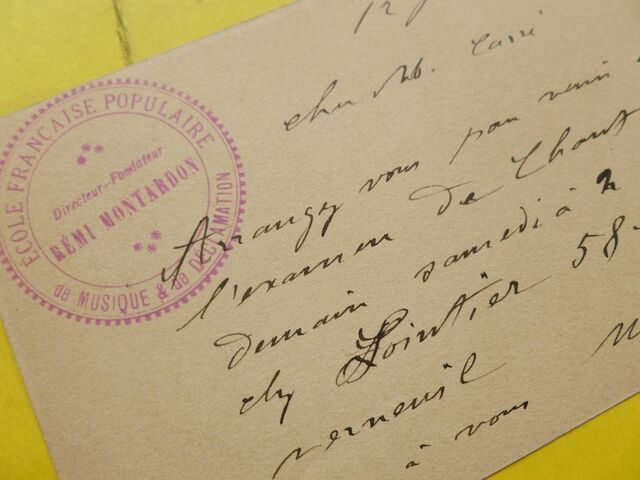 ECOLE FRANÇAISE POPULAIRE
Directeur-Fondateur
RÉMI MONTARDON
de MUSIQUE & de DÉCLAMATION
cher M. Carré
Arrangez vous pour venir
l'examen de Chant
demain samedi à 2
chez Lointier 58
verneuil
à vous